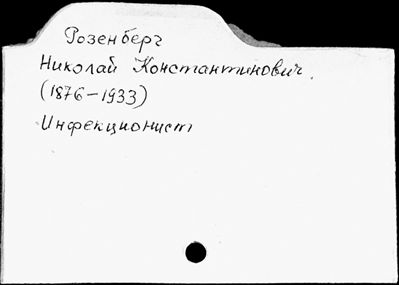 Розенберг
Николай Константинович.
(1876-1933)
Инфекционист